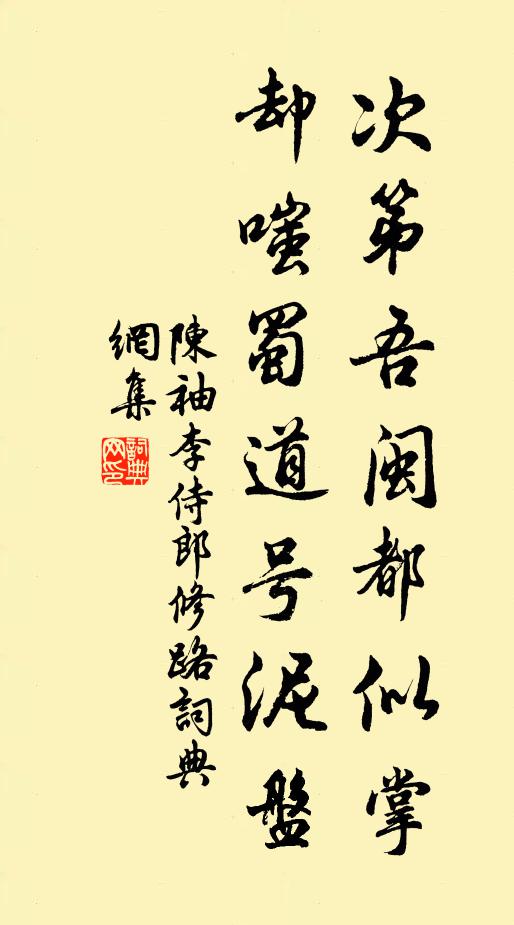 次第吾闽都似掌
却嗤蜀道号泥盤
陳袖李侍郎修路詞典
網集
詞典
网印